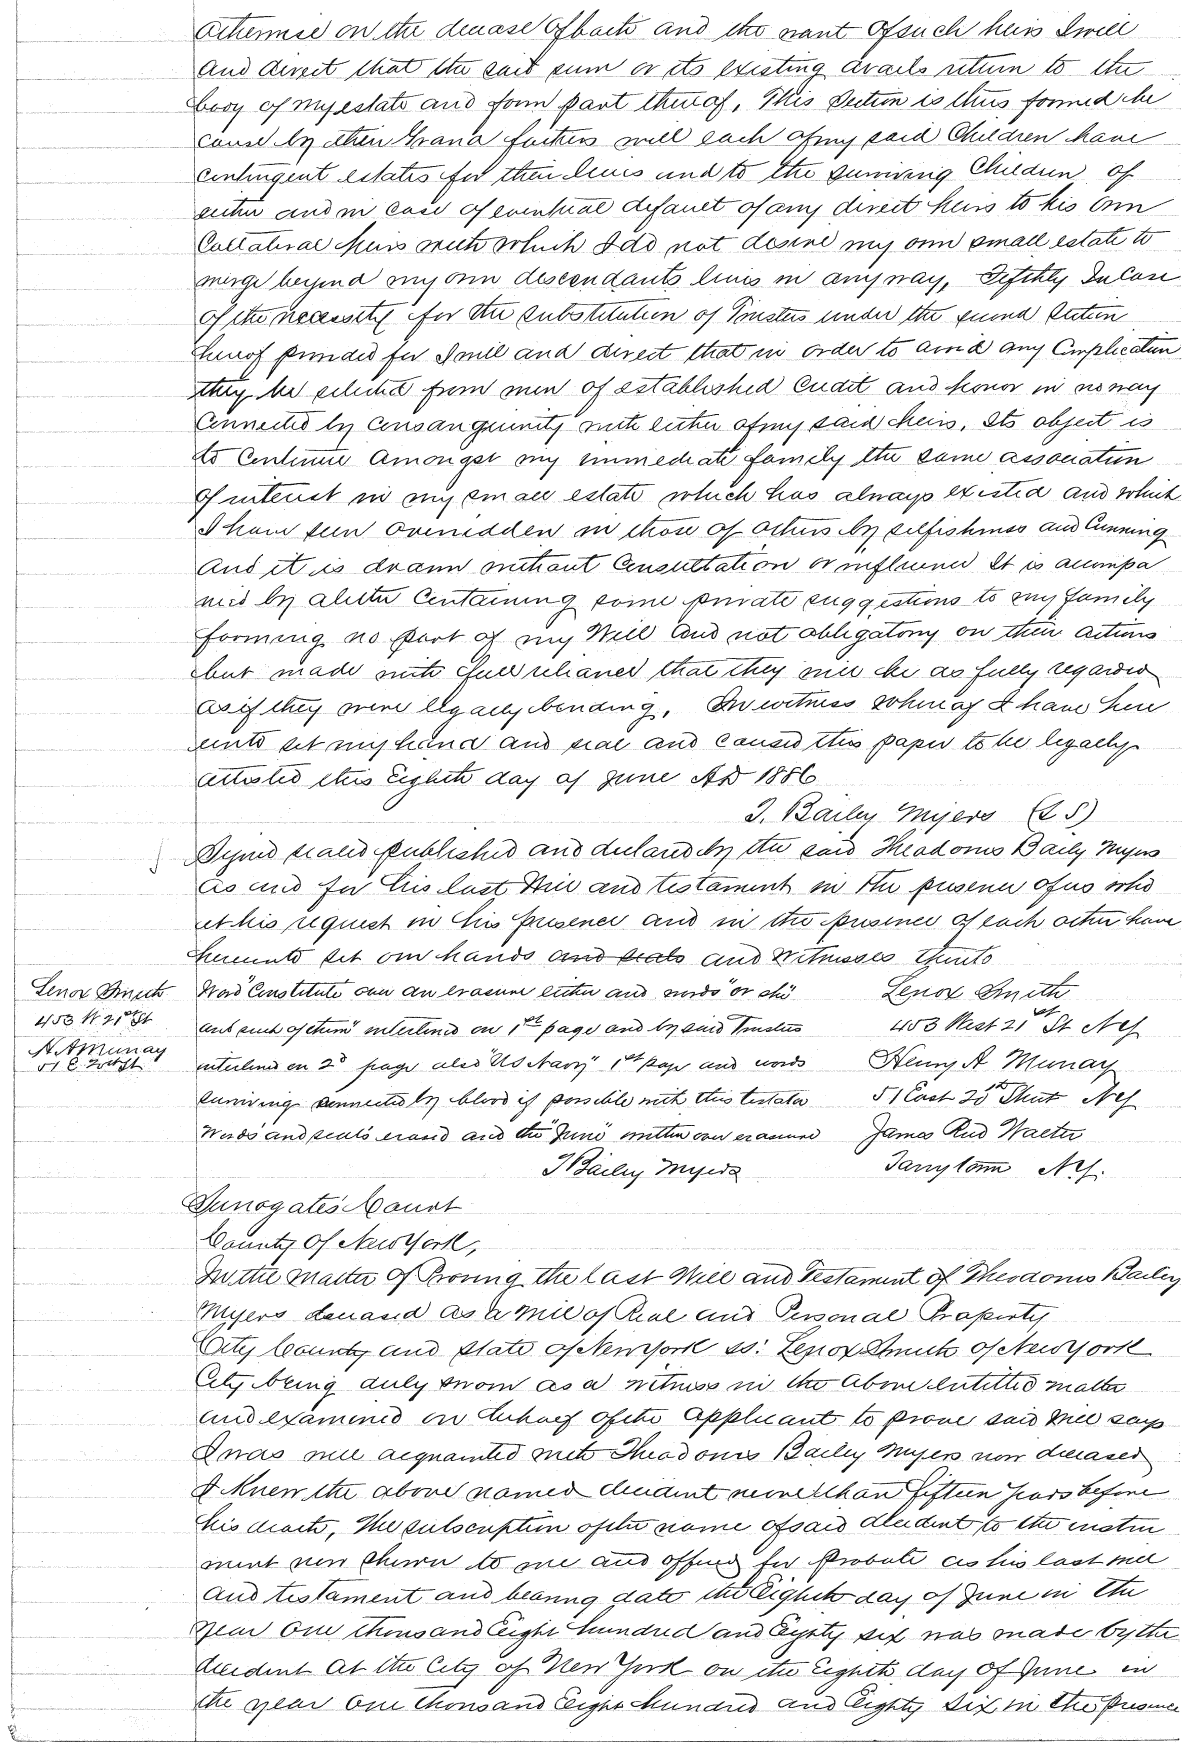 otherwise on the decease of both and the want of such heirs I will
and direct that the said sum or its existing avails return to the
body of my estate and form part thereof, This Section is thus formed be
cause by their Grand fathers will each of my said Children have
contingent estates for their lives and to the surviving Children of
either and in case of eventual default of any direct heirs to his own
Collateral heirs with which I do not desire my own small estate to
merge beyond my own descendants lines in any way, Fifthly In Case
of the necessity for the substitution of Trustees under the second Section
hereof provided for I will and direct that in order to avoid any Complication
they be selected from men of established Credit and honor in no way
Connected by Consanguinity with either of my said heirs, Its object is
to Continue amongst my immediate family the same association
of interest in my small estate which has always existed and which
I have seen overridden in those of others by selfishness and Cunning
and it is drawn without Consultation or influence It is accompa
nied by a letter Containing some private suggestions to my family
forming no part of my Will and not obligatory on their actions
but made with full reliance that they will be as fully regarded
as if they were legally binding, In witness whereof I have here
unto set my hand and seal and caused this paper to be legally
attested this Eighth day of June AD 1886
T. Bailey Myers (L S)
Signed sealed published and declared by the said Theodorus Baily Myers
as and for his last Will and testament in the presence of us who
at his request in his presence and in the presence of each other have
hereunto set our hands and seals and Witnesses thereto
Lenox Smith Word "Constitute" over an erasure either and words "or the Lenox Smith
453 W 21st St ant such of them" interlined on 1st page and by said Trustees 453 West 21st St NY
H A Murray interlined on 2d page also "US Navy" 1st page and words Henry A Murray
51 E St surviving connected by blood if possible with this testator 51 East St NY
Words "and seals" erased and the "June" written over erasure James Reid Walter
T Bailey Myers Tarrytown NY.
Surrogate's Court
County of New York,
In the matter of Proving the last Will and Testament of Theodorus Bailey
Myers deceased as a Will of Real and Personal Property
City County and State of New York ss: Lenox Smith of New York
City being duly sworn as a witness in the above entitled matter
and examined on behalf of the applicant to prove said Will says
I was well acquainted with Theodorus Bailey Myers now deceased
I Knew the above named decedent more than fifteen years before
his death, The subscription of the name of said decedent to the instru
ment now shown to me and offered for Probate as his last will
and testament and bearing date the Eighth day of June in the
year One thousand Eight hundred and Eighty six was made by the
decedent at the City of New York on the Eighth day of June in
the year One thousand Eight hundred and Eighty Six in the presence